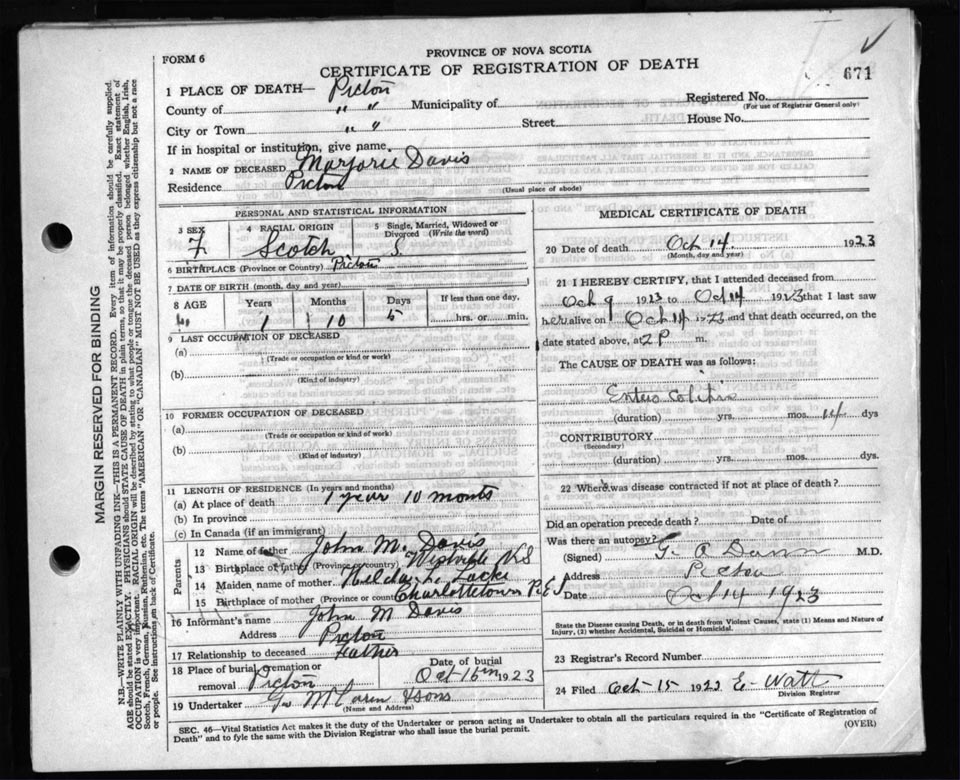 PROVINCE OF NOVA SCOTIA
FORM 6
CERTIFICATE OF REGISTRATION OF DEATH
671
1 PLACE OF DEATH— Pictou
Registered No.
(For use of Registrar General only)
County of " " Municipality of
City or Town " " Street House No.
If in hospital or institution, give name.
2 NAME OF DECEASED Marjorie Davis
Residence Pictou
(Usual place of abode)
PERSONAL AND STATISTICAL INFORMATION
3 SEX 4 RACIAL ORIGIN 5 Single, Married, Widowed or Divorced (Write the word)
F Scotch S.
6 BIRTHPLACE (Province or Country) Pictou
7 DATE OF BIRTH (month, day, and year)
8 AGE Years Months Days If less than one day,
1 10 5 hrs. or min.
9 LAST OCCUPATION OF DECEASED
(a)
(Trade or occupation or kind or work)
(b)
(Kind of industry)
10 FORMER OCCUPATION OF DECEASED
(a)
(Trade or occupation or kind of work)
(b)
(Kind of industry)
11 LENGTH OF RESIDENCE (In years and months)
(a) At place of death 1 year 10 months
(b) In province
(c) In Canada (if an immigrant)
Parents
12 Name of father John M. Davis
13 Birthplace of father (Province or country) Westville N.S
14 Maiden name of mother Hilda L.
15 Birthplace of mother (Province or country) Charlottetown P.E.I
16 Informant's name John M Davis
Address Pictou
17 Relationship to deceased Father
18 Place of burial, cremation or removal Pictou
Date of burial Oct 16th 1923
19 Undertaker Geo McLaren & Sons
(Name and Address)
MEDICAL CERTIFICATE OF DEATH
20 Date of death Oct 14 1923
(Month, day and year)
21 I HEREBY CERTIFY, that I attended deceased from
Oct 9 1923 to Oct 14 1923 that I last saw
her alive on Oct 14 1923 and that death occurred, on the
date stated above, at 2 P m.
The CAUSE OF DEATH was as follows:
Entero Colitis
(duration) yrs. mos. dys
CONTRIBUTORY
(Secondary)
(duration) yrs. mos. dys.
22 Where was disease contracted if not at place of death?
Did an operation precede death? Date of
Was there an autopsy?
(Signed) M.D.
Address Pictou
Date Oct 14 1923
State the Disease causing Death, or in death from Violent Causes, state (1) Means and Nature of
Injury, (2) whether Accidental, Suicidal or Homicidal.
23 Registrar's Record Number
24 Filed Oct 15 1923 E. Watt
Division Registrar
SEC. 46—Vital Statistics Act makes it the duty of the Undertaker or person acting as Undertaker to obtain all the particulars required in the "Certificate of Registration of
Death" and to fyle the same with the Division Registrar who shall issue the burial permit.
(OVER)
MARGIN RESERVED FOR BINDING
N.B.—WRITE PLAINLY WITH UNFADING INK—THIS IS A PERMANENT RECORD. Every item of information should be carefully supplied.
AGE should be stated EXACTLY. PHYSICIANS should STATE CAUSE OF DEATH in plain terms, so that it may be properly classified. Exact statement of
OCCUPATION is very important. RACIAL ORIGIN will be described by stating to what people or tongue the deceased person belonged whether English, Irish,
Scotch, French, German, Russian, Ruthenian, etc. The terms "AMERICAN" or "CANADIAN" MUST NOT BE USED as they express citizenship but not a race
or people. See instructions on back of Certificate.